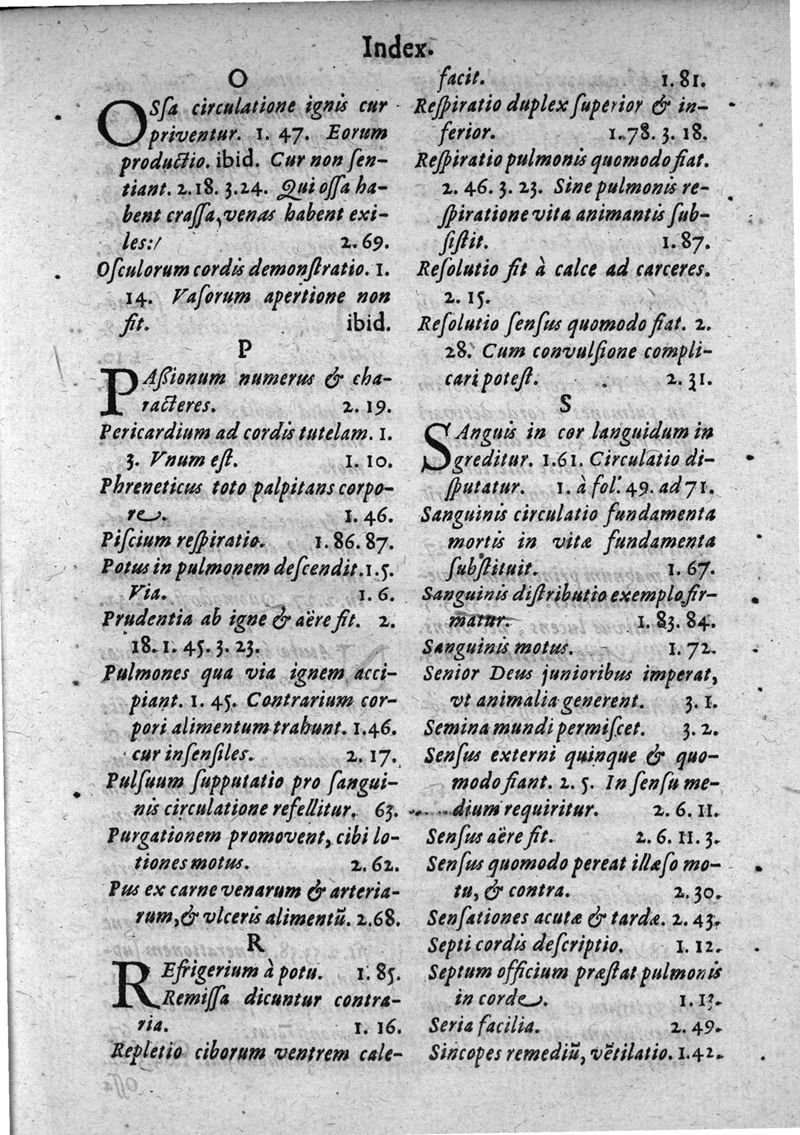 Index.
O
OSſa circulatione ignis cur
priventur. 1. 47. Eorum
productio. ibid. Cur non ſen-
tiant. 2.18. 3.24. Qui oſſa ha-
bent craſſa, venas habent exi-
les:/ 2. 69.
Oſculorum cordis demonſtratio. 1.
14. Vaſorum apertione non
fit. ibid.
P
PAſsionum numerus & cha-
racteres. 2. 19.
Pericardium ad cordis tutelam. 1.
3. Vnum eſt. 1. 10.
Phreneticus toto palpitans corpo-
re. 1. 46.
Piſcium reſpiratio. 1. 86. 87.
Potus in pulmonem deſcendit. 1. 5.
Via. 1. 6.
Prudentia ab igne & aëre fit. 2.
18. 1. 45. 3. 23.
Pulmones qua via ignem acci-
piant. 1. 45. Contrarium cor-
pori alimentum trahunt. 1.46.
cur inſenſiles. 2. 17.
Pulſuum ſupputatio pro ſangui-
nis circulatione refellitur. 63.
Purgationem promovent, cibi lo-
tiones motus. 2. 62.
Pus ex carne venarum & arteria-
rum, & vlceris alimentū. 2.68.
R
REfrigerium à potu. 1. 85.
Remiſſa dicuntur contra-
ria. 1. 16.
Repletio ciborum ventrem cale-
facit. 1. 81.
Reſpiratio duplex ſuperior & in-
ferior. 1. 78. 3. 18.
Reſpiratio pulmonis quomodo fiat.
2. 46. 3. 23. Sine pulmonis re-
ſpiratione vita animantis ſub-
ſiſtit. 1. 87.
Reſolutio fit à calce ad carceres.
2. 15.
Reſolutio ſenſus quomodo fiat. 2.
28. Cum convulſione compli-
cari poteſt. 2. 31.
S
SAnguis in cor languidum in
greditur. 1.61. Circulatio di-
ſputatur. 1. à fol. 49. ad 71.
Sanguinis circulatio fundamenta
mortis in vitæ fundamenta
ſubſtituit. 1. 67.
Sanguinis diſtributio exemplo fir-
matur. 1. 83. 84.
Sanguinis motus. 1. 72.
Senior Deus junioribus imperat,
vt animalia generent. 3. 1.
Semina mundi permiſcet. 3. 2.
Senſus externi quinque & quo-
modo fiant. 2. 5. In ſenſu me-
dium requiritur. 2. 6. 11.
Senſus aëre fit. 2. 6. 11. 3.
Senſus quomodo pereat illæſo mo-
tu, & contra. 2. 30.
Senſationes acutæ & tardæ. 2. 43.
Septi cordis deſcriptio. 1. 12.
Septum officium præſtat pulmonis
in corde. 1. 13.
Seria facilia. 2. 49.
Sincopes remediū, vētilatio. 1.42.